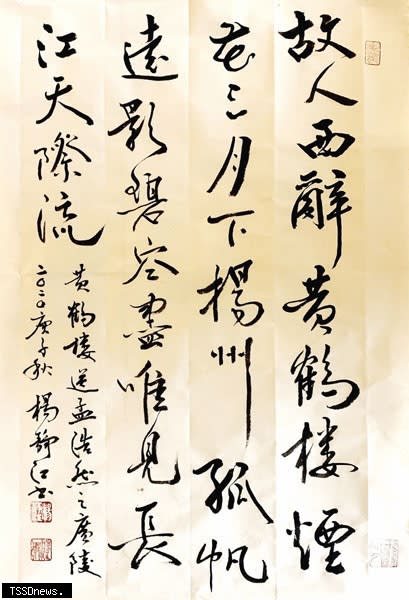 故人西辭黄鶴楼煙
花三月下揚州孤帆
遠影碧空盡唯見長
江天際流
黄鶴楼送孟浩然之廣陵
二〇二〇庚子秋 楊靜江书
TSSDnews.